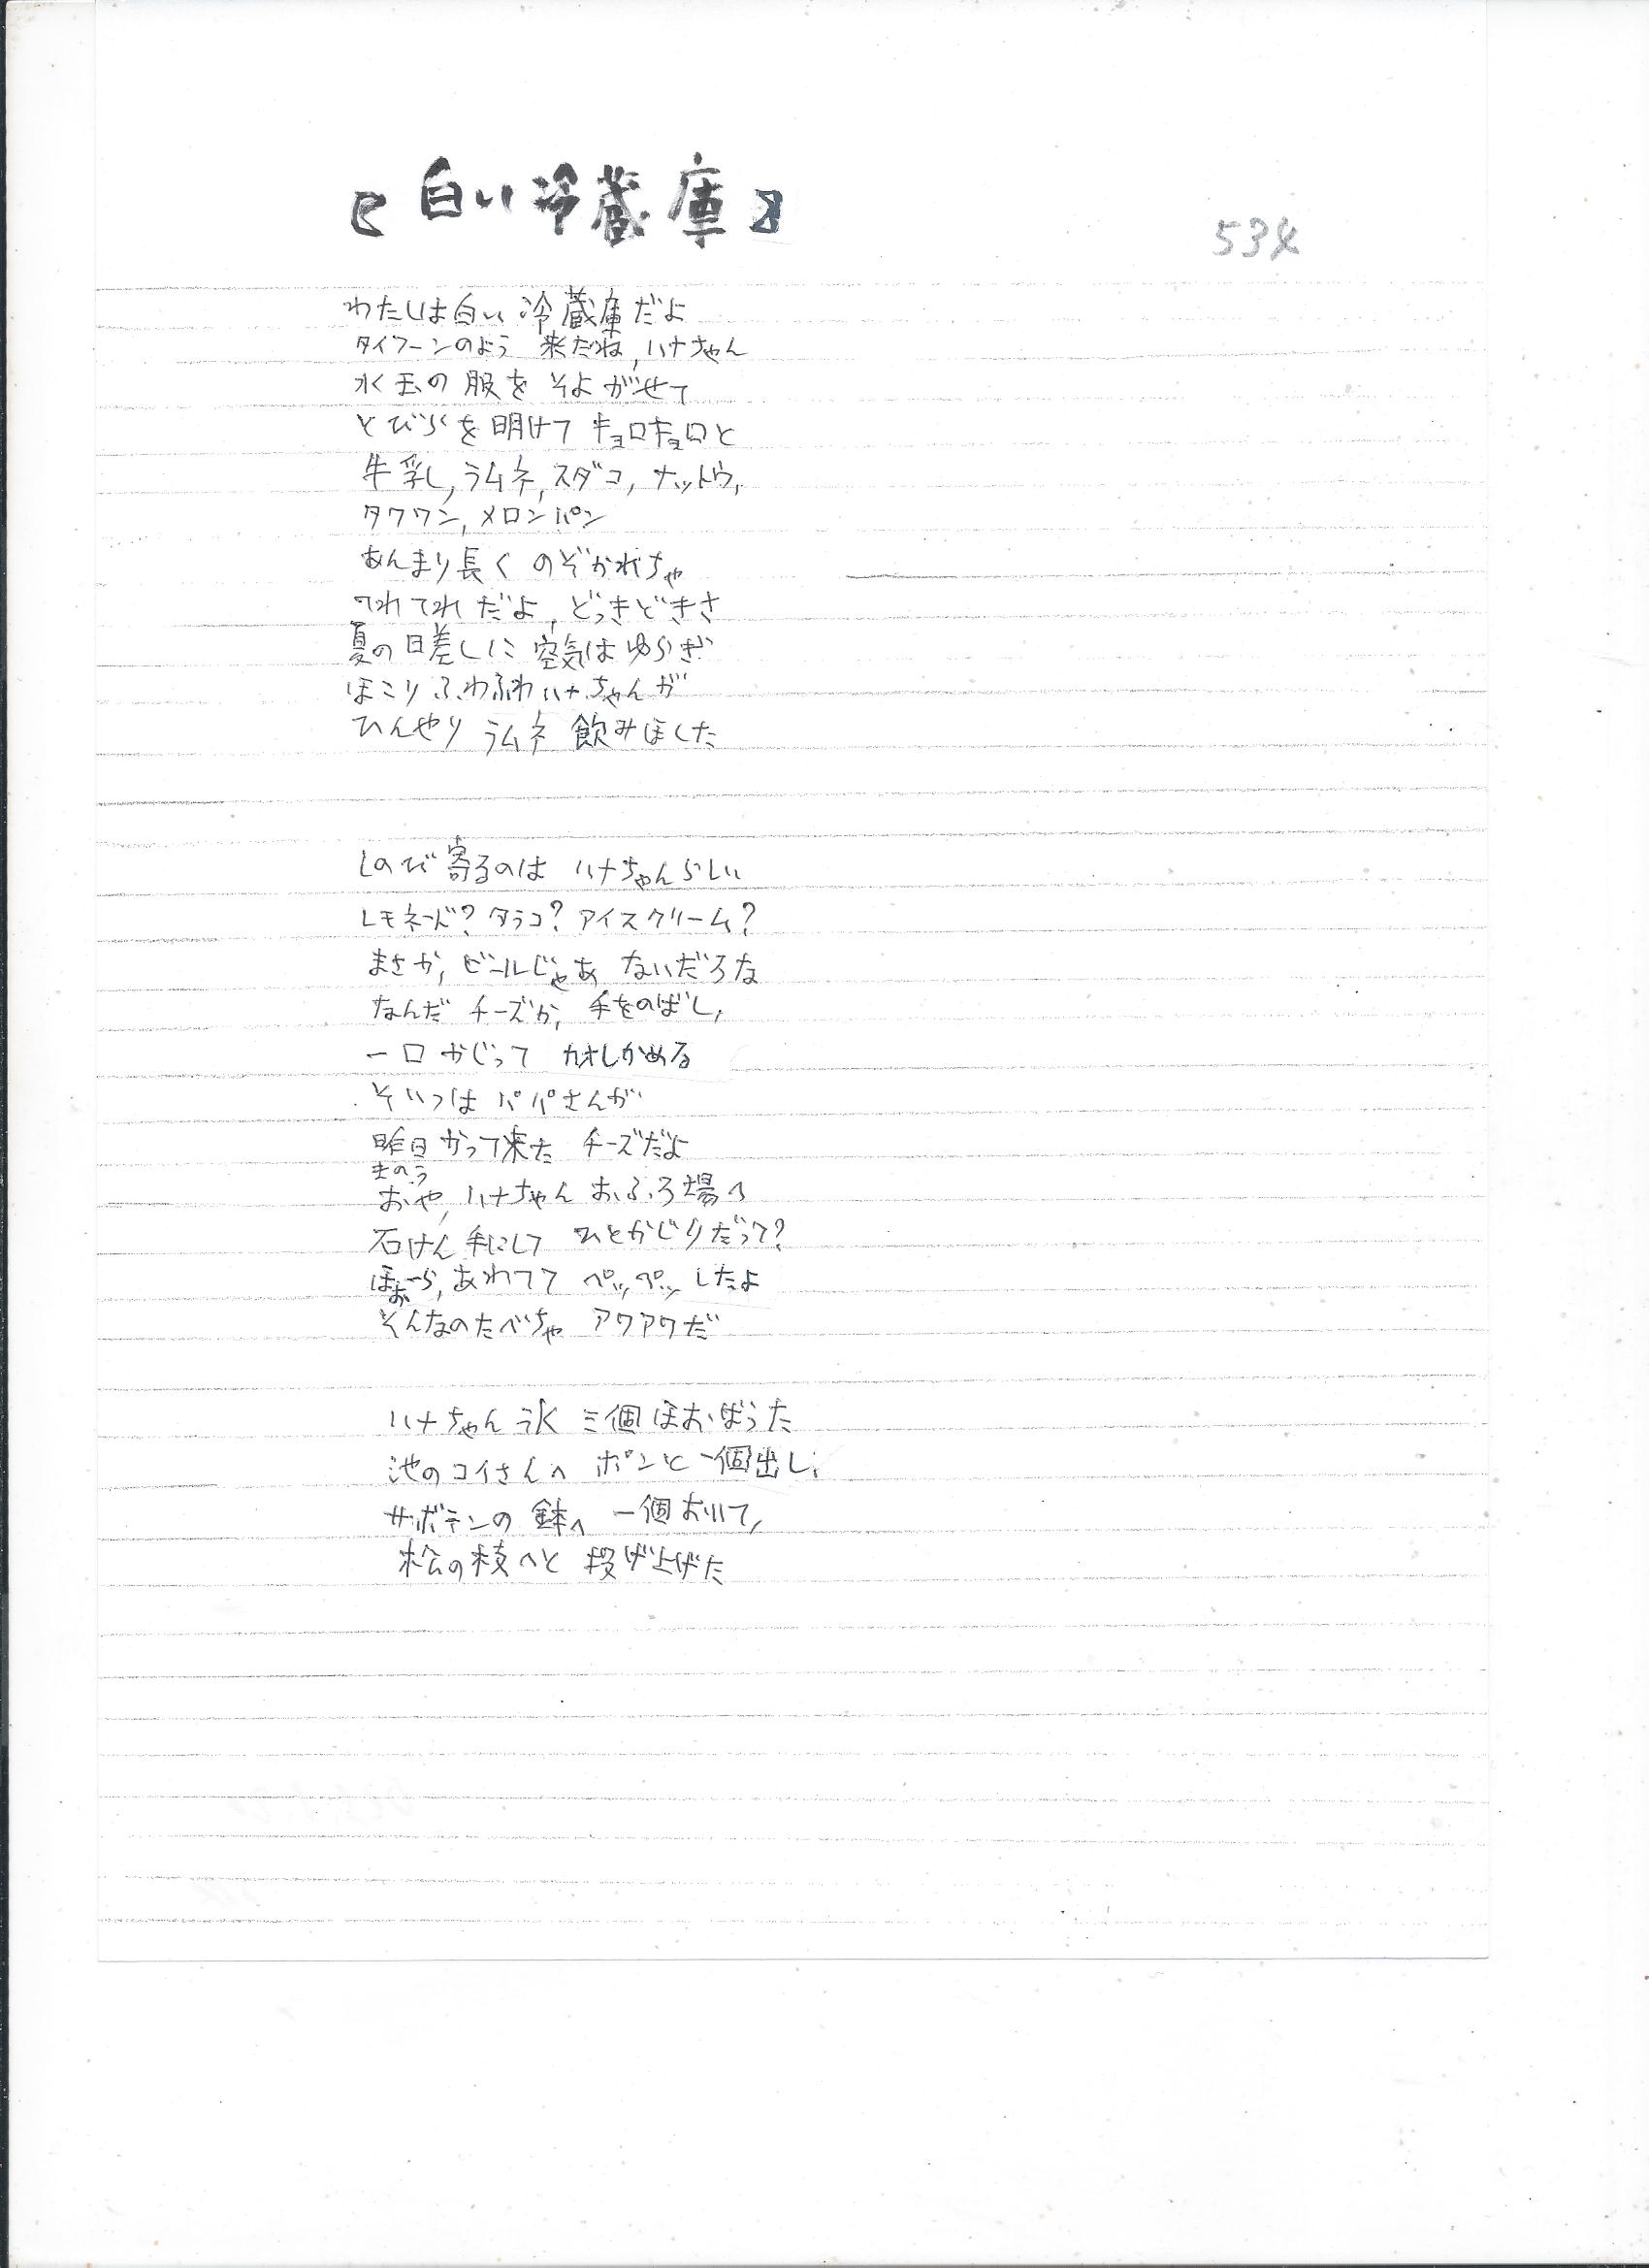 【白い冷蔵庫】
534
わたしは白い冷蔵庫だよ
タイフーンのよう 来たね, ハナちゃん
水玉の服を そよがせて
とびらを明けて キョロキョロと
牛乳し, ラムネ, スダコ, ナットウ,
タクワン, メロンパン
あんまり長く のぞかれちゃ
てれてれだよ, どっきどきさ
夏の日差しに 空気はゆらぎ
ほこりふわふわ ハナちゃんが
ひんやり ラムネ 飲みほした
しのび寄るのは ハナちゃんらしい
レモネード? タラコ? アイスクリーム?
まさか, ビールじゃあ ないだろな
なんだ チーズか, 手をのばし,
一口かじって カオしかめる
そいつは パパさんが
昨日かって来た チーズだよ
きのう
おや, ハナちゃん おふろ場へ
石けん手にして ひとかじりだって?
ほおーら, あわてて ペッペッしたよ
そんなのたべちゃ アワアワだ
ハナちゃん 氷 三個ほおばった
池のコイさんへ ポンと一個出し,
サボテンの鉢へ 一個おいて,
松の枝へと 投げ上げた